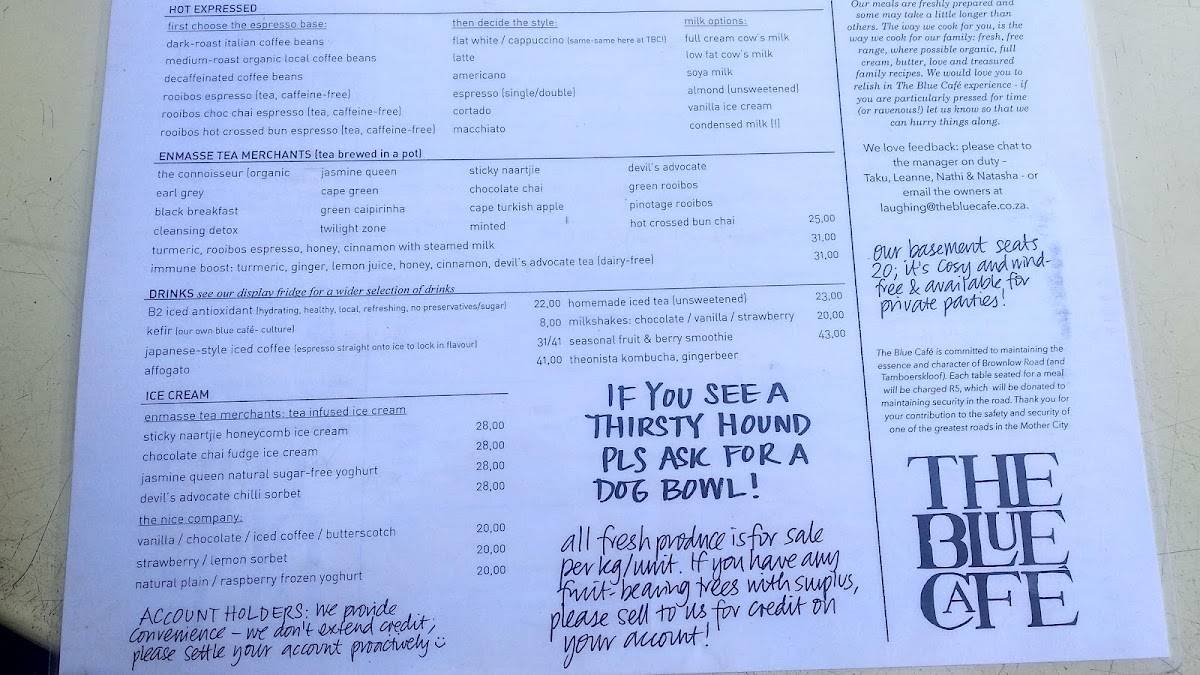 HOT EXPRESSED
first choose the espresso base:
dark-roast italian coffee beans
medium-roast organic local coffee beans
decaffeinated coffee beans
rooibos espresso (tea, caffeine-free)
rooibos choc chai espresso (tea, caffeine-free)
rooibos hot crossed bun espresso (tea, caffeine-free)
then decide the style:
flat white / cappuccino (same-same here at TBC!)
latte
americano
espresso (single/double)
cortado
macchiato
milk options:
full cream cow's milk
low fat cow's milk
soya milk
almond (unsweetened)
vanilla ice cream
condensed milk (!)
ENMASSE TEA MERCHANTS (tea brewed in a pot)
the connoisseur (organic
earl grey
black breakfast
cleansing detox
jasmine queen
cape green
green caipirinha
twilight zone
sticky naartjie
chocolate chai
cape turkish apple
minted
devil's advocate
green rooibos
pinotage rooibos
hot crossed bun chai 25,00
turmeric, rooibos espresso, honey, cinnamon with steamed milk 31,00
immune boost: turmeric, ginger, lemon juice, honey, cinnamon, devil's advocate tea (dairy-free) 31,00
DRINKS see our display fridge for a wider selection of drinks
B2 iced antioxidant (hydrating, healthy, local, refreshing, no preservatives/sugar) 22,00
kefir (our own blue café- culture) 8,00
japanese-style iced coffee (espresso straight onto ice to lock in flavour) 31/41
affogato 41,00
homemade iced tea (unsweetened) 23,00
milkshakes: chocolate / vanilla / strawberry 20,00
seasonal fruit & berry smoothie 43,00
theonista kombucha, gingerbeer
ICE CREAM
enmasse tea merchants: tea infused ice cream
sticky naartjie honeycomb ice cream 28,00
chocolate chai fudge ice cream 28,00
jasmine queen natural sugar-free yoghurt 28,00
devil's advocate chilli sorbet 28,00
the nice company:
vanilla / chocolate / iced coffee / butterscotch 20,00
strawberry / lemon sorbet 20,00
natural plain / raspberry frozen yoghurt 20,00
ACCOUNT HOLDERS: we provide
convenience – we don't extend credit;
please settle your account proactively
IF YOU SEE A
THIRSTY HOUND
PLS ASK FOR A
DOG BOWL!
all fresh produce is for sale
per kg/unit. If you have any
fruit-bearing trees with surplus,
please sell to us for credit on
your account!
Our meals are freshly prepared and
some may take a little longer than
others. The way we cook for you, is the
way we cook for our family: fresh, free
range, where possible organic, full
cream, butter, love and treasured
family recipes. We would love you to
relish in The Blue Café experience - if
you are particularly pressed for time
(or ravenous!) let us know so that we
can hurry things along.
We love feedback: please chat to
the manager on duty –
Taku, Leanne, Nathi & Natasha - or
email the owners at
laughing@thebluecafe.co.za.
our basement seats
20; it's cosy and wind-
free & available for
private parties!
The Blue Café is committed to maintaining the
essence and character of Brownlow Road (and
Tamboerskloof). Each table seated for a meal
will be charged R5, which will be donated to
maintaining security in the road. Thank you for
your contribution to the safety and security of
one of the greatest roads in the Mother City
THE
BLUE
CAFE